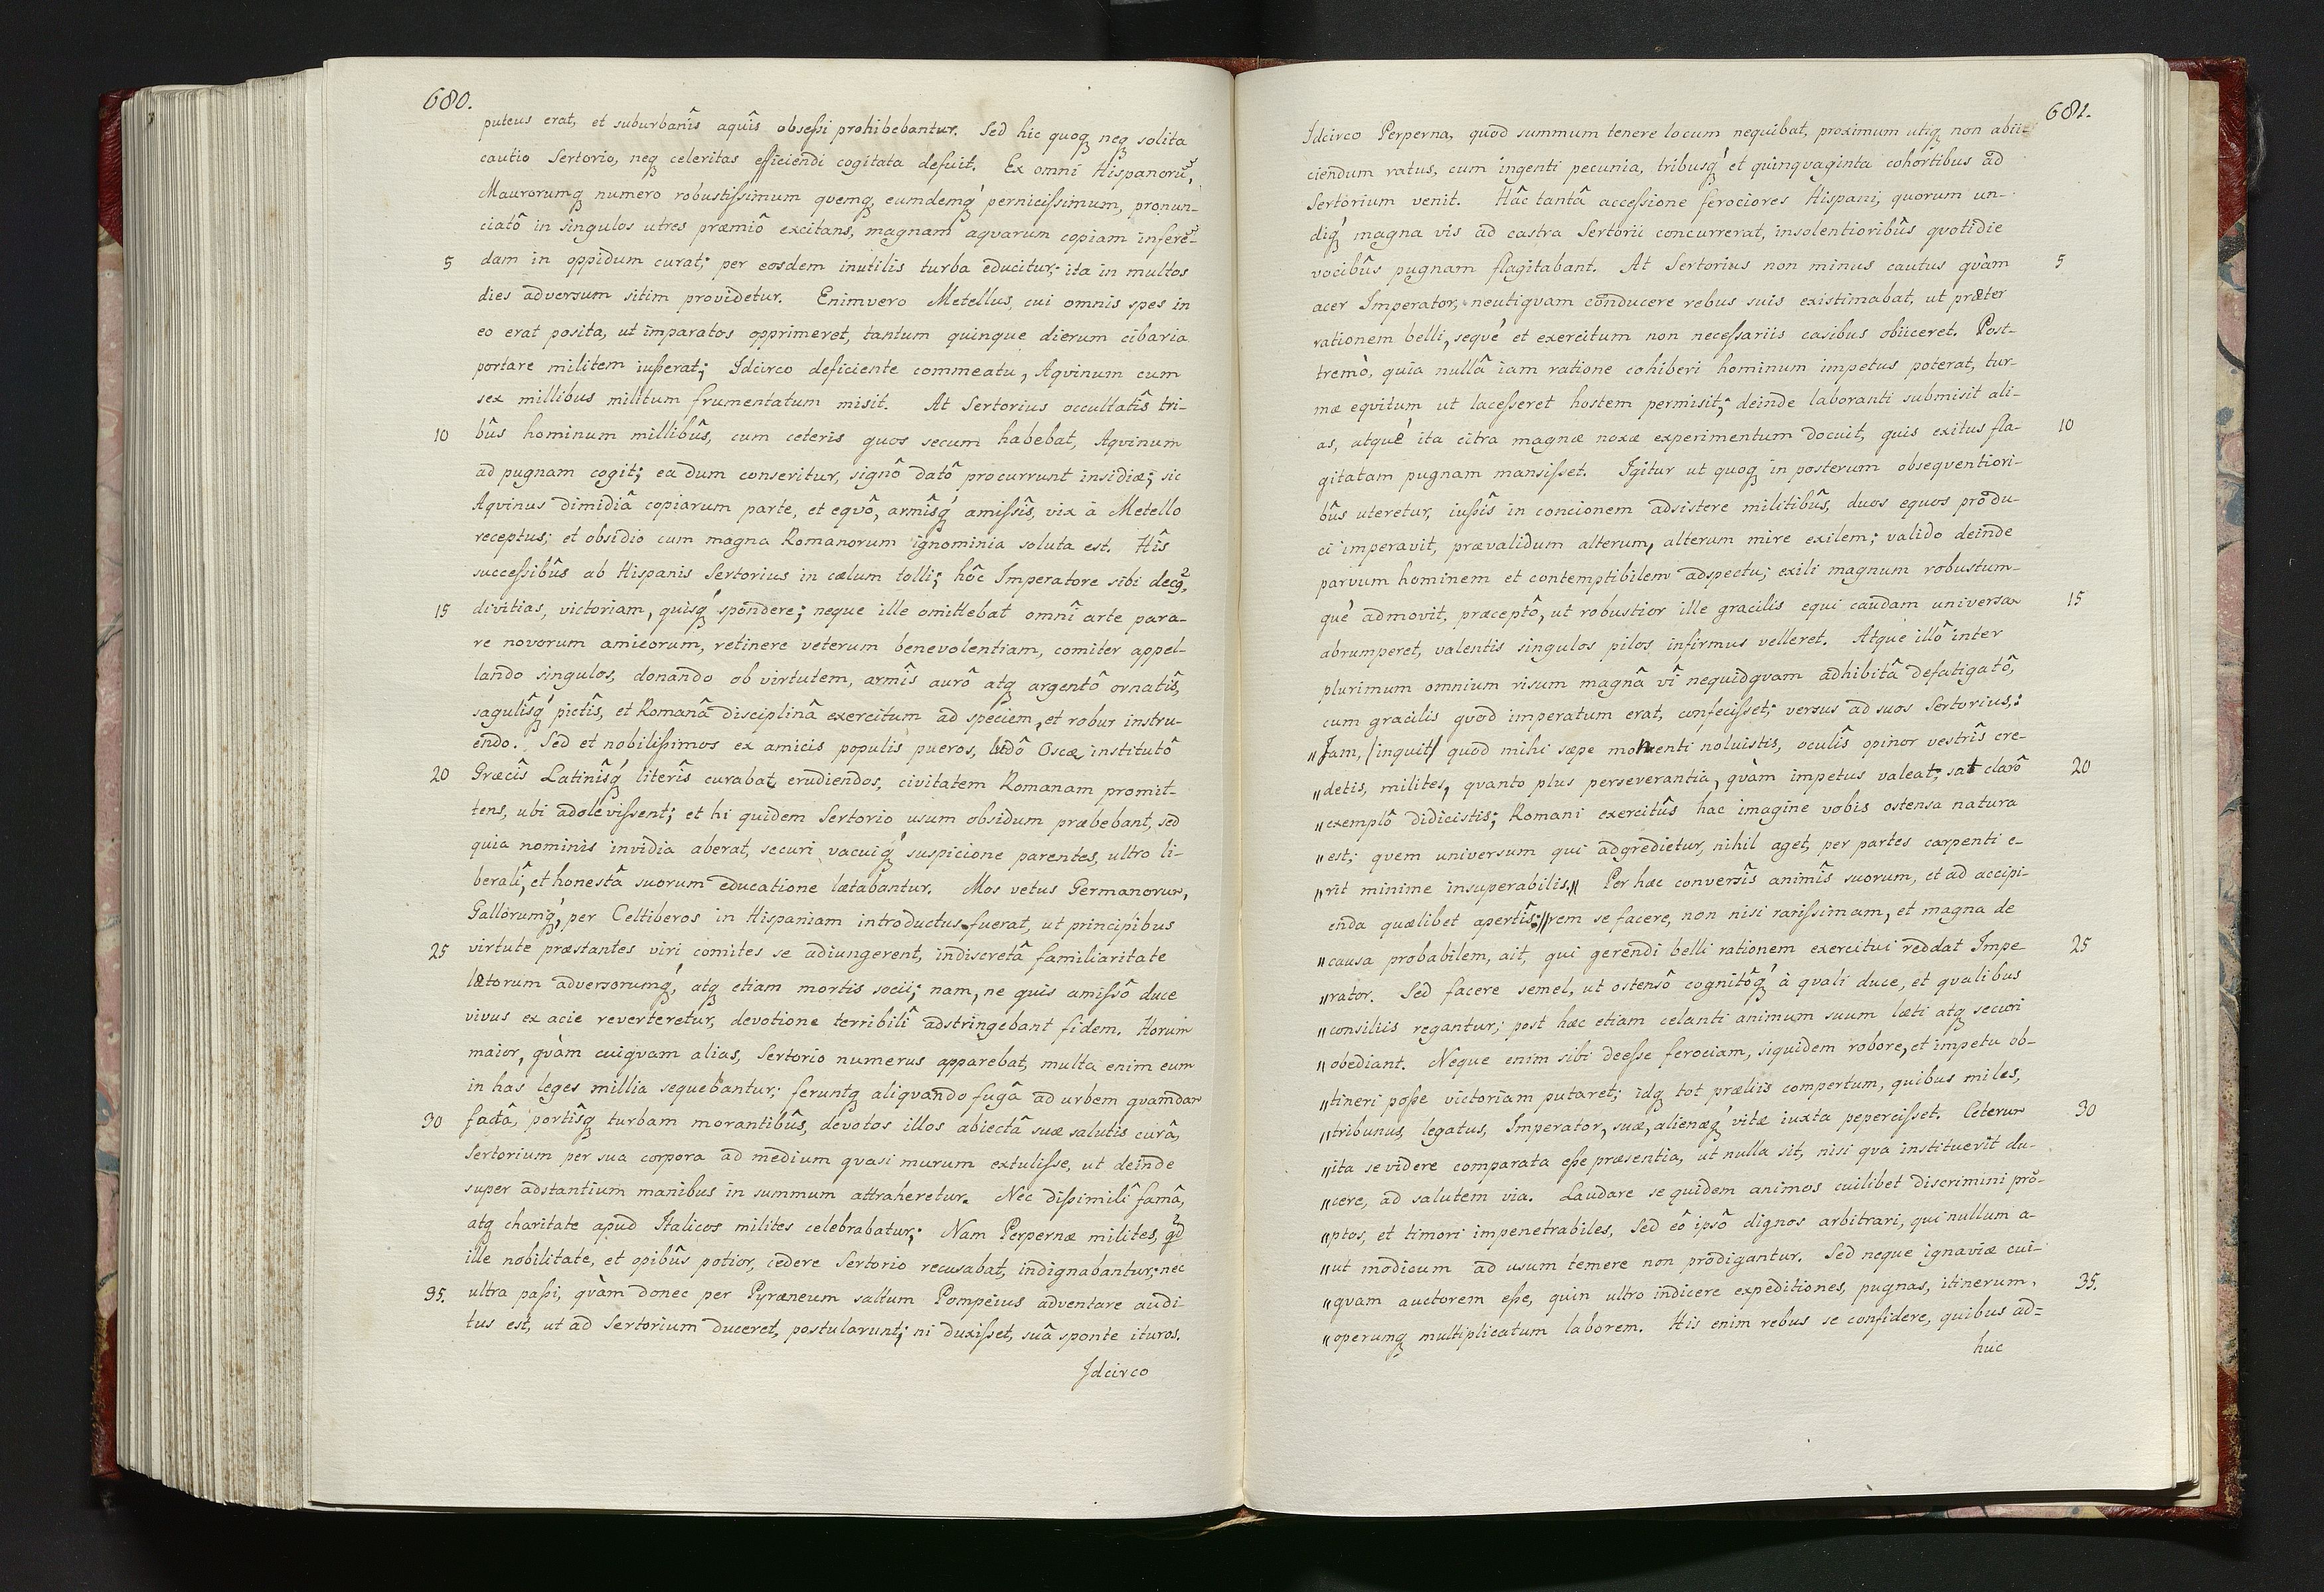 680.
puteus erat, et suburbanîs aquîs obseßi prohibebantur. Sed hic quoq neq solita
cautio Sertorio, neq celeritas efficiendi cogitata defuit. Ex omni Hispanorũ,
Maurorumq numero robustißimum quemq, eumdemq́ pernicißimum, pronun-
ciatô in singulos utres præmiô excitans, magnam aquarum copiam inferẽ-
5 dam in oppidum curat; per eosdem inutilis turba educitur; ita in multos
dies adversum sitim providetur. Enimvero Metellus, cui omnis spes in
eo erat posita, ut imparatos opprimeret, tantum quinque dierum cibaria
portare militem iußerat; Idcirco deficiente commeatu, Aqvinum cum
sex millibus militum frumentatum misit. At Sertorius occultatîs tri-
10 bûs hominum millibûs, cum ceteris quos secum habebat, Aqvinum
ad pugnam cogit; ea dum conseritur, signô datô procurrunt insidiæ; sic
Aqvinus dimidiâ copiarum parte, et eqvô, armîsq́ amißîs, vix à Metello
receptus; et obsidio cum magna Romanorum ignominia soluta est. Hîs
succeßibûs ab Hispanis Sertorius in cælum tolli; hôc Imperatore sibi decq,
15 divitias, victoriam, quisq́ spondere; neque ille omittebat omnî arte para-
re novorum amicorum, retinere veterum benevolentiam, comiter appel-
lando singulos, donando ob virtutem, armîs aurô atq argentô ornatîs,
sagulîsq́ pictîs, et Romanâ disciplinâ exercitum ad speciem, et robur instru-
endo. Sed et nobilißimos ex amicis populis pueros, ludô Oscæ institutô
20 Græcîs Latinîsq́ literîs curabat erudiendos, civitatem Romanam promit-
tens, ubi adolevißent; et hi quidem Sertorio usum obsidum præbebant, sed
quia nominis invidia aberat, securi vacuiq́ suspicione parentes, ultro li-
beralî, et honestâ suorum educatione lætabantur. Mos vetus Germanorum,
Gallorumq́, per Celtiberos in Hispaniam introductus fuerat, ut principibus
25 virtute præstantes viri comites se adiungerent, indiscretâ familiaritate
lætorum adversorumq́, atq etiam mortis socii; nam, ne quis amißô duce
vivus ex acie reverteretur, devotione terribilî adstringebant fidem. Horum
maior, qvàm cuiqvam alias, Sertorio numerus apparebat, multa enim eum
in has leges millia sequebantur; feruntq aliqvando fugâ ad urbem qvamdam
30 factâ, portîsq turbam morantibûs, devotos illos abiectâ suæ salutis curâ,
Sertorium per sua corpora ad medium qvasi murum extuliße, ut deinde
super adstantium manibus in summum attraheretur. Nec dißimilî famâ,
atq charitate apud Italicos milites celebrabatur; Nam Perpernæ milites, qd
ille nobilitate, et opibûs potior, cedere Sertorio recusabat, indignabantur; nec
35. ultra paßi, qvàm donec per Pyræneum saltum Pompeius adventare audi-
tus est, ut ad Sertorium duceret, postularunt; ni duxißet, suâ sponte ituros.
Idcirco
681.
Idcirco Perperna, quod summum tenere locum nequibat, proximum utiq non abii-
ciendum ratus, cum ingenti pecunia, tribusq́ et quinqvaginta cohortibus ad
Sertorium venit. Hâc tantâ acceßione ferociores Hispani, quorum un-
diq́ magna vis ad castra Sertorii concurrerat, insolentioribûs qvotidie
vocibûs pugnam flagitabant. At Sertorius non minus cautus qvàm 5
acer Imperator, neutiqvam conducere rebus suis existimabat, ut præter
rationem belli, seqve et exercitum non neceßariis casibus obiiceret. Post-
tremò, quia nullâ iam ratione cohiberi hominum impetus poterat, tur-
mæ eqvitum ut laceßeret hostem permisit; deinde laboranti submisit ali-
as, atque ita citra magnæ noxæ experimentum docuit, quis exitus fla- 10
gitatam pugnam mansißet. Igitur ut quoq in posterum obseqventiori-
bûs uteretur, iußîs in concionem adsistere militibûs, duos equos produ-
ci imperavit, prævalidum alterum, alterum mire exilem; valido deinde
parvum hominem et contemptibilem adspectu; exili magnum robustum-
que admovit, præceptô, ut robustior ille gracilis equi caudam universam 15
abrumperet, valentis singulos pilos infirmus velleret. Atque illô inter
plurimum omnium risum magnâ vî nequidqvam adhibitâ defatigatô,
cum gracilis qvod imperatum erat, confecißet; versus ad suos Sertorius,:
„Jam, (inquit) quod mihi sæpe monenti noluistis, oculîs opinor vestrîs cre-
„detis, milites, qvanto plus perseverantia, qvàm impetus valeat; sat clarô 20
„exemplô didicistis; Romani exercitûs hac imagine vobis ostensa natura
„est; qvem universum qui adgredietur, nihil aget, per partes carpenti e-
„rit minime insuperabilis.„ Per hæc conversîs animîs suorum, et ad accipi-
enda quælibet apertîs:„rem se facere, non nisi rarißimam, et magna de
„causa probabilem, ait, qui gerendi belli rationem exercitui reddat Impe- 25
„rator. Sed facere semel, ut ostensô cognitôq́ à qvali duce, et qvalibus
„consiliis regantur; post hæc etiam celanti animum suum læti atq securi
„obediant. Neque enim sibi deeße ferociam, siquidem robore, et impetu ob-
„tineri poße victoriam putaret; idq tot præliis compertum, quibus miles,
„tribunus, legatus, Imperator, suæ, alienæq́ vitæ iuxta pepercißet. Ceterum 30
„ita se videre comparata eße præsentia, ut nulla sit, nisi qva instituerit du-
„cere, ad salutem via. Laudare se quidem animos cuilibet discrimini prõ-
„ptos, et timori impenetrabiles, Sed eô ipsô dignos arbitrari, qui nullum a-
„ut modicum ad usum temere non prodigantur. Sed neque ignaviæ cui-
„qvam auctorem eße, quin ultro indicere expeditiones, pugnas, itinerum, 35.
„operumq multiplicatum laborem. His enim rebus se confidere, quibus ad=
huc